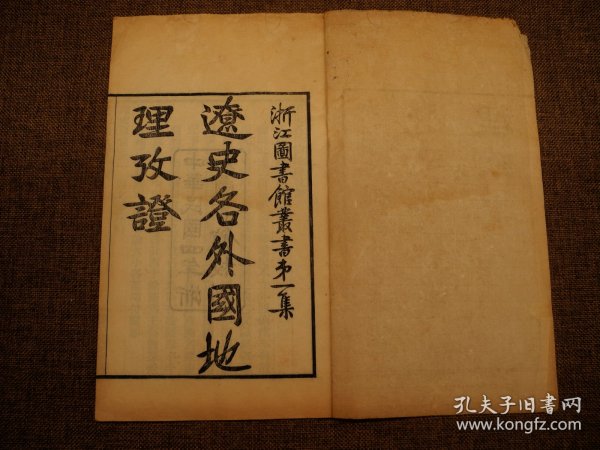 浙江圖書館叢書弟一集
遼史各外國地
理攷證
孔夫子旧書网
www.kongfz.com